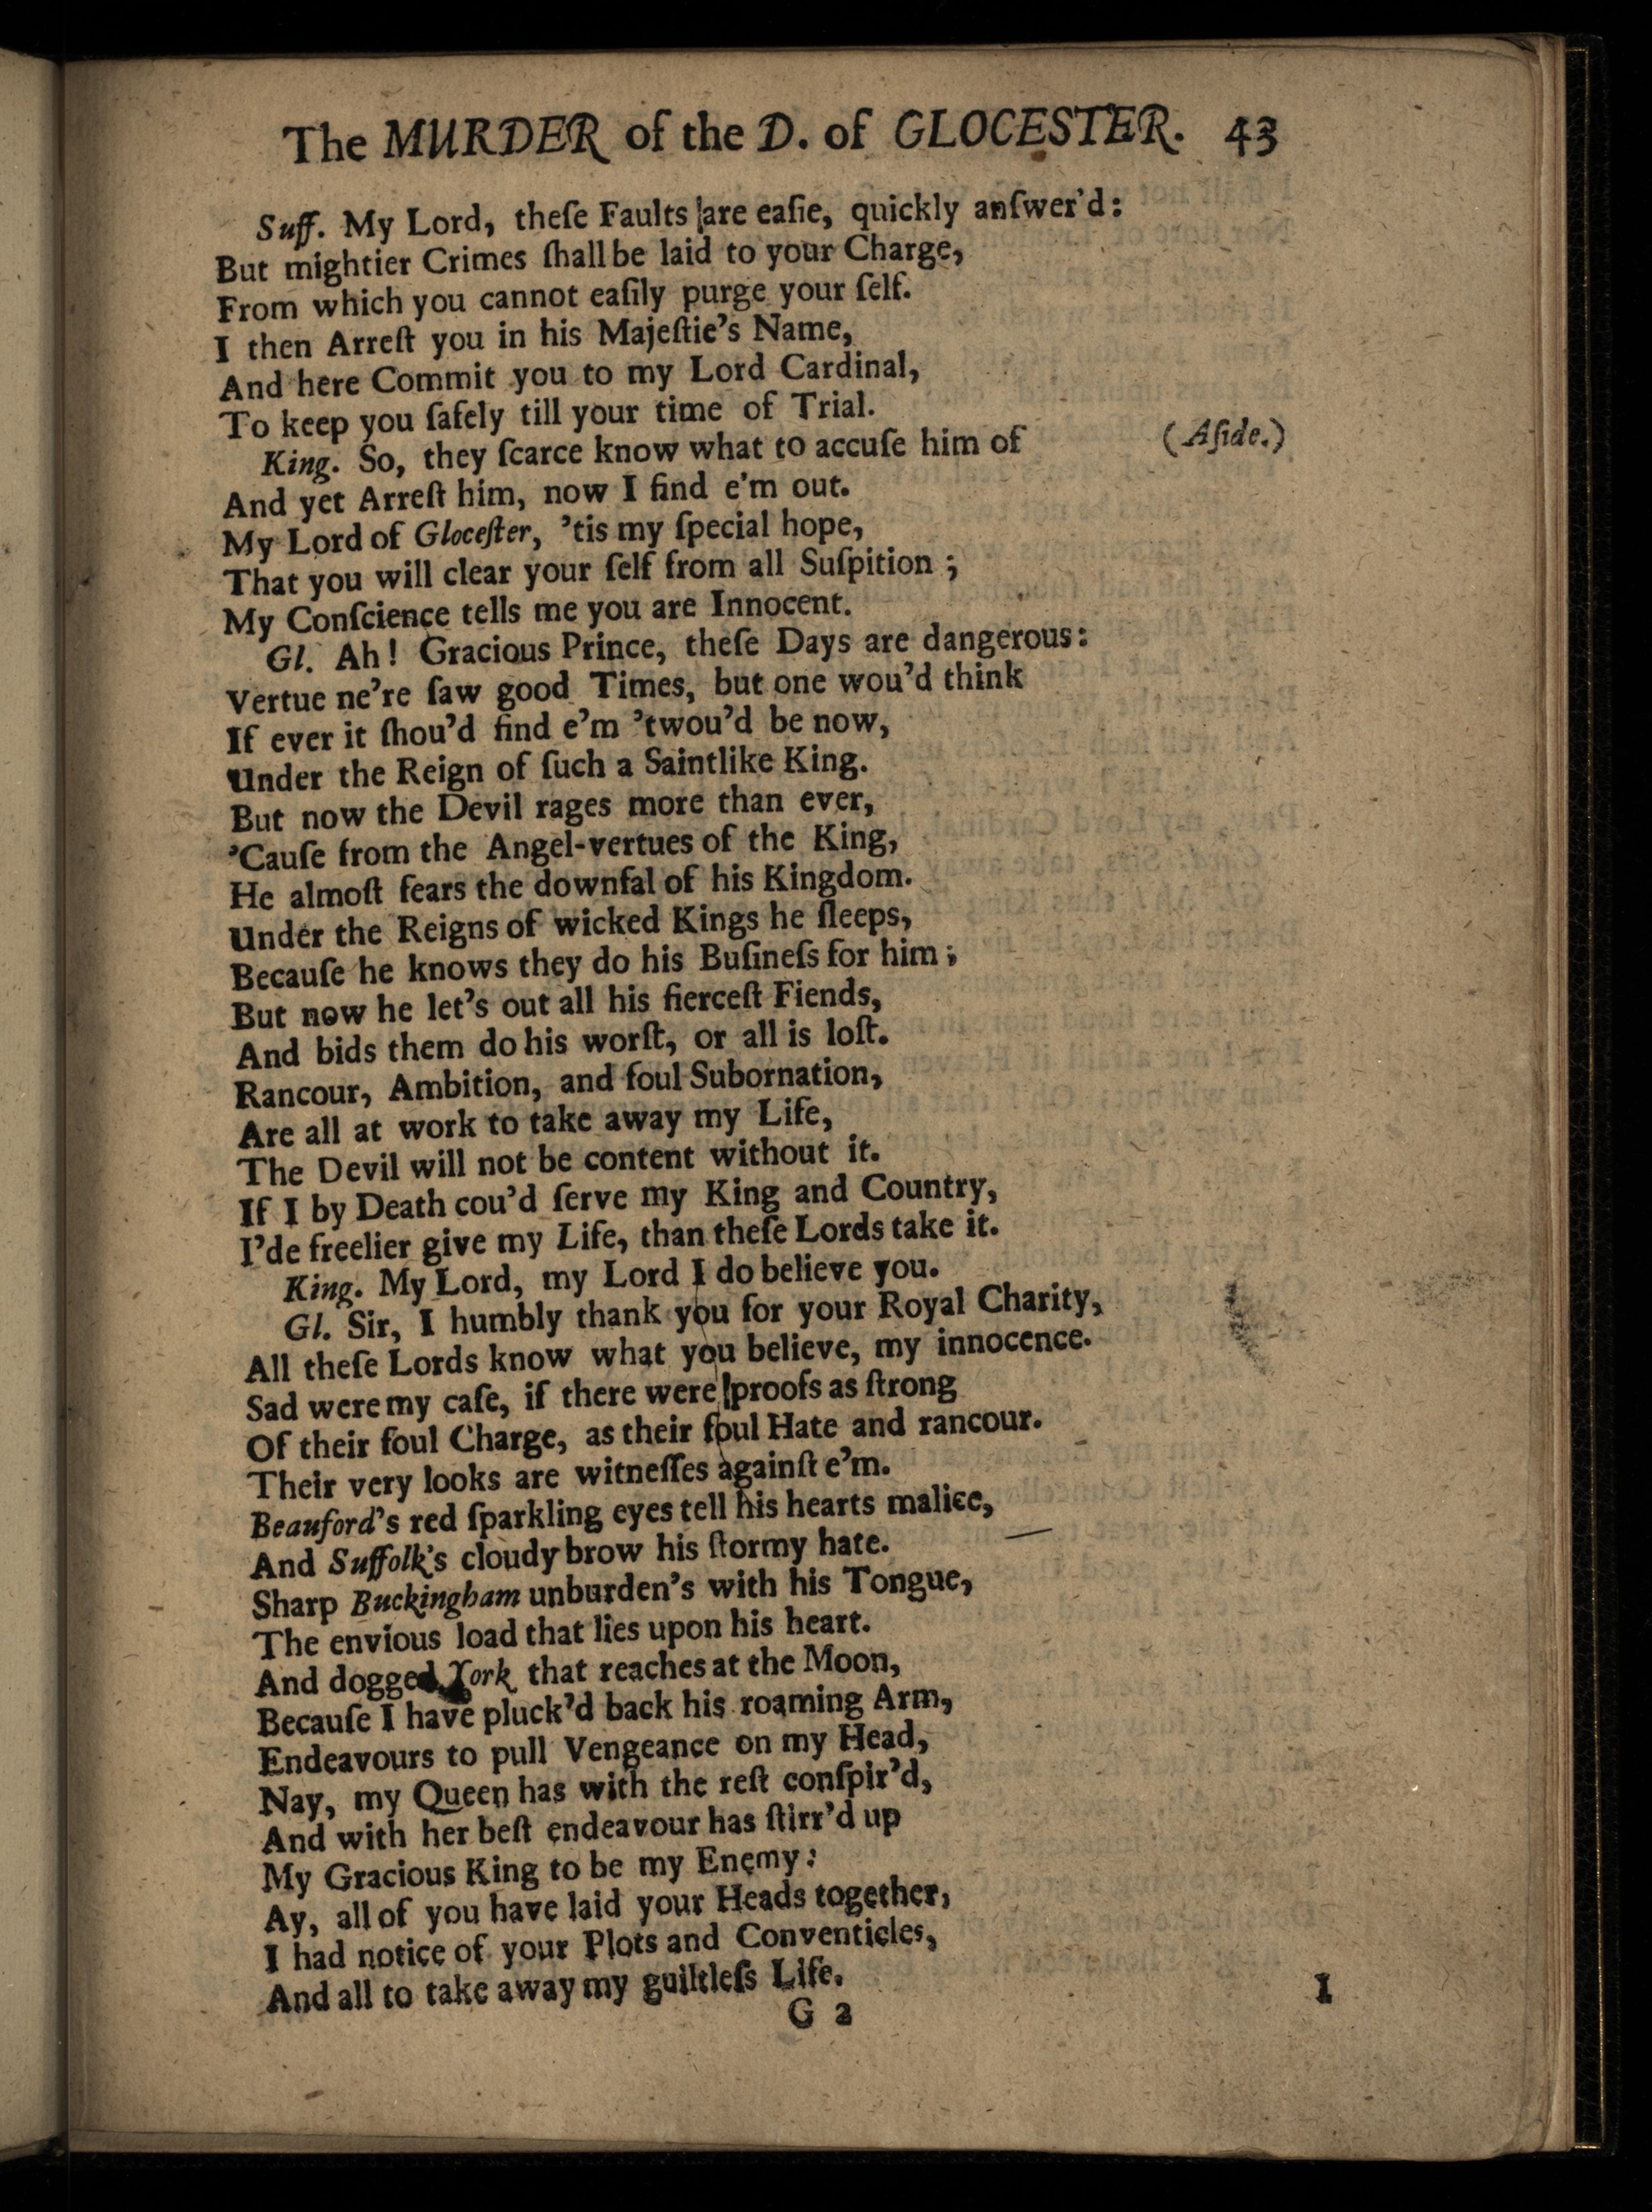 The MURDER of the D. of GLOCESTER. 43
Suff. My Lord, theſe Faults are eaſie, quickly anſwer'd:
But mightier Crimes ſhall be laid to your Charge,
From which you cannot eaſily purge your ſelf.
I then Arreſt you in his Majeſtie's Name,
And here Commit you to my Lord Cardinal,
To keep you ſafely till your time of Trial.
King. So, they ſcarce know what to accuſe him of (Aſide.)
And yet Arreſt him, now I find e'm out.
My Lord of Gloceſter, 'tis my ſpecial hope,
That you will clear your ſelf from all Suſpition ;
My Conſcience tells me you are Innocent.
Gl. Ah! Gracious Prince, theſe Days are dangerous:
Vertue ne're ſaw good Times, but one wou'd think
If ever it ſhou'd find e'm 'twou'd be now,
Under the Reign of ſuch a Saintlike King.
But now the Devil rages more than ever,
'Cauſe from the Angel-vertues of the King,
He almoſt fears the downfal of his Kingdom.
Under the Reigns of wicked Kings he ſleeps,
Becauſe he knows they do his Buſineſs for him;
But now he let's out all his fierceſt Fiends,
And bids them do his worſt, or all is loſt.
Rancour, Ambition, and foul Subornation,
Are all at work to take away my Life,
The Devil will not be content without it.
If I by Death cou'd ſerve my King and Country,
I'de freelier give my Life, than theſe Lords take it.
King. My Lord, my Lord I do believe you.
Gl. Sir, I humbly thank you for your Royal Charity,
All theſe Lords know what you believe, my innocence.
Sad were my caſe, if there were proofs as ſtrong
Of their foul Charge, as their foul Hate and rancour.
Their very looks are witneſſes againſt e'm.
Beauford's red ſparkling eyes tell his hearts malice,
And Suffolk's cloudy brow his ſtormy hate.
Sharp Buckingham unburden's with his Tongue,
The envious load that lies upon his heart.
And dogged York that reaches at the Moon,
Becauſe I have pluck'd back his roaming Arm,
Endeavours to pull Vengeance on my Head,
Nay, my Queen has with the reſt conſpir'd,
And with her beſt endeavour has ſtirr'd up
My Gracious King to be my Enemy:
Ay, all of you have laid your Heads together,
I had notice of your Plots and Conventicles,
And all to take away my guiltleſs Life.
G 2 I